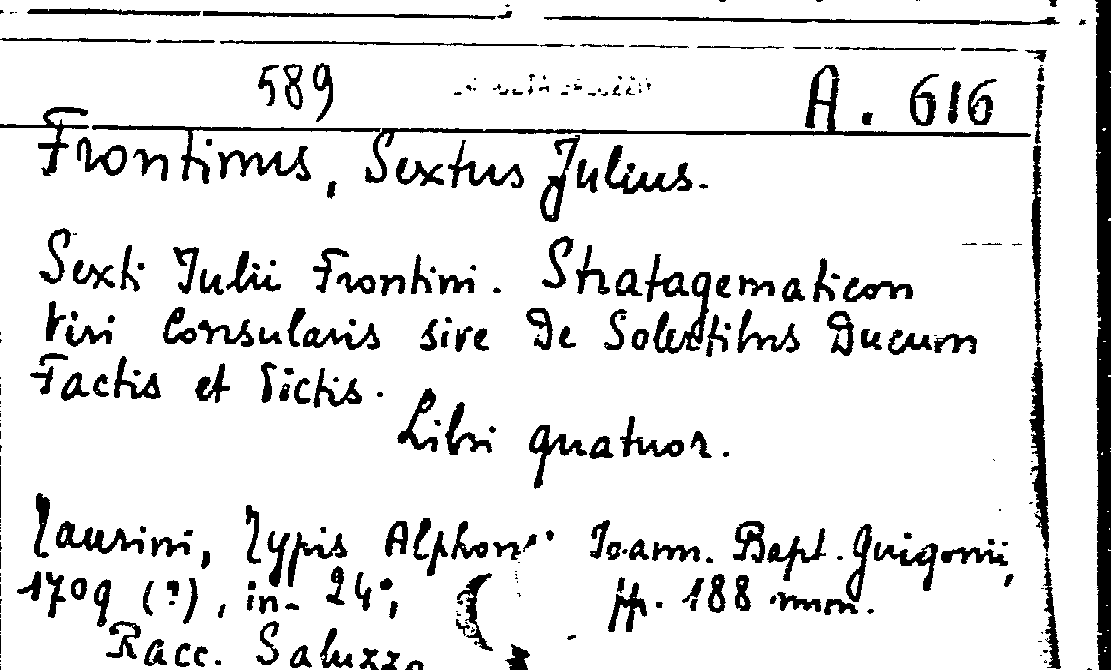 589 A. 616
Frontinus, Sextus Julius.
Sexti Julii Frontini. Stratagematicon
Viri Consularis sive De Solertibus Ducum
Factis et Dictis.
Libri quatuor.
Taurini, Typis Alphonsi Joann. Bapt. Guigonii,
1709 (?), in-24°, pp. 188 num.
Racc. Saluzzo